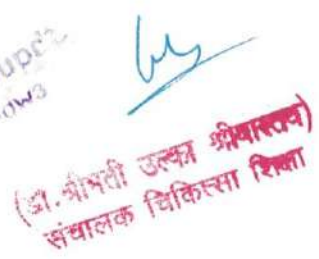 (डा. श्रीमती उल्का श्रीवास्तव)
संचालक चिकित्सा शिक्षा